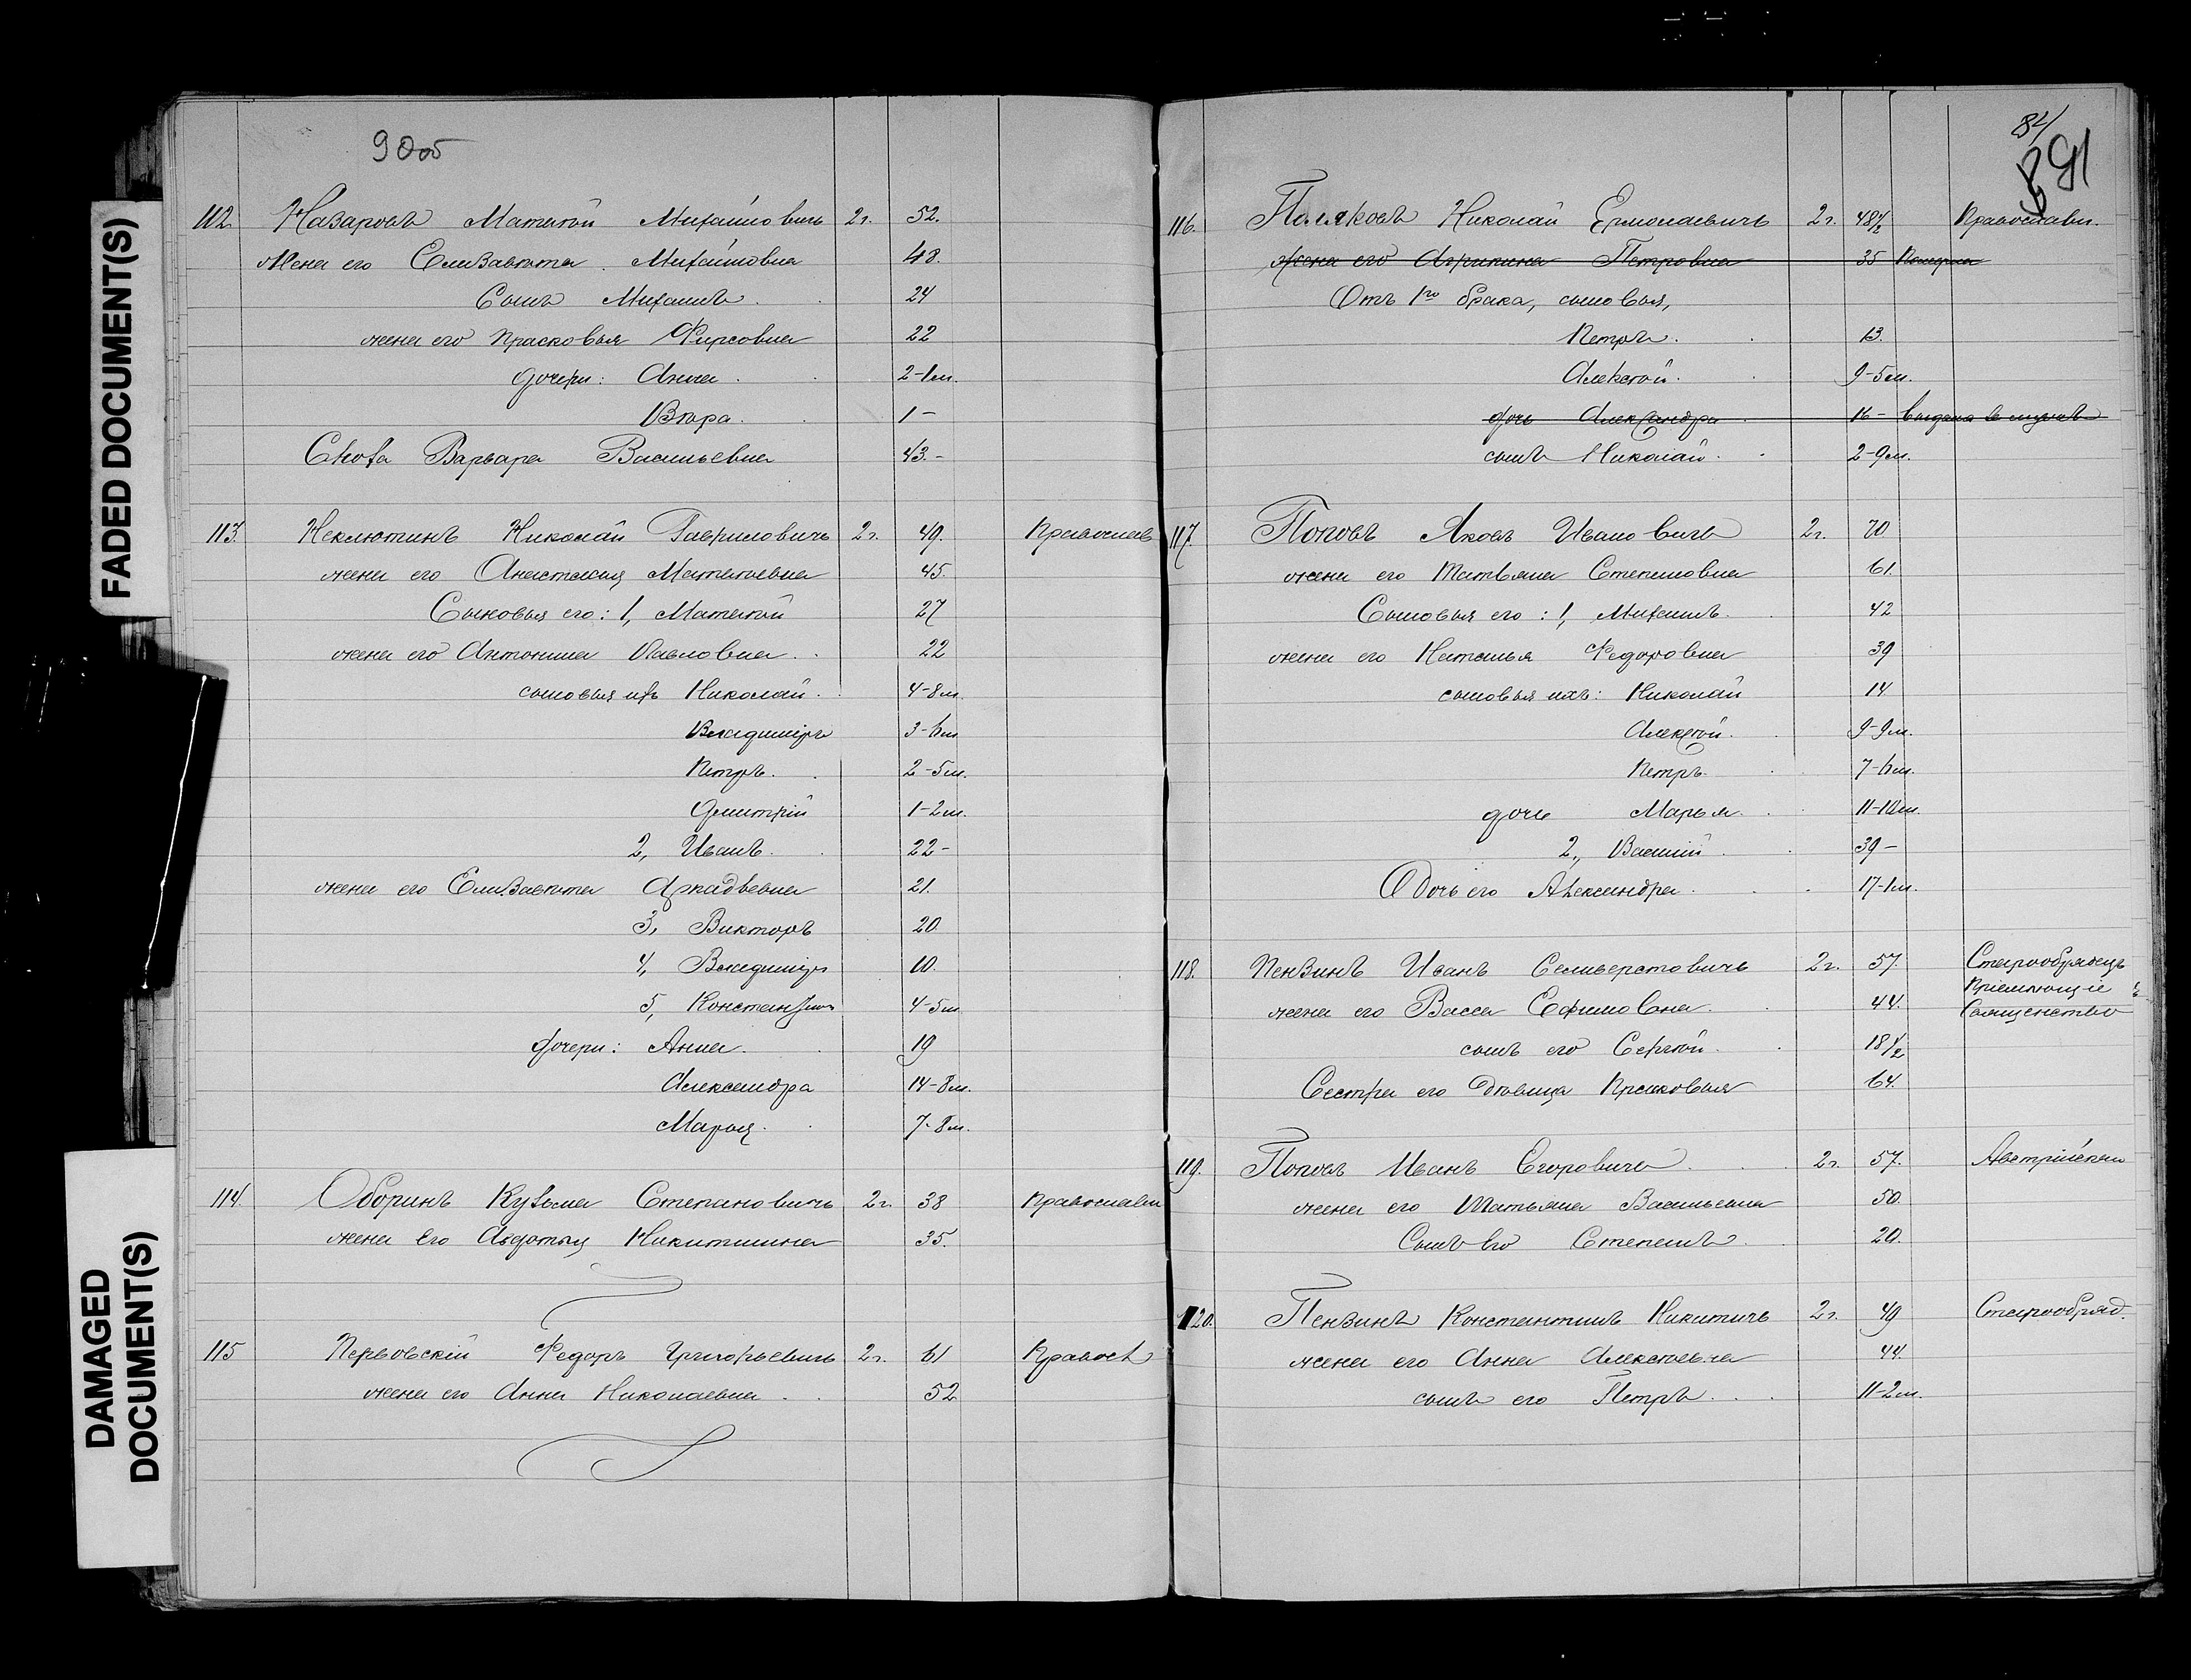 FADED DOCUMENT(S)
DAMAGED DOCUMENT(S)
90об
112. Назаровъ Матвѣй Михайловичъ 2 г. 52.
Жена его Елизавѣта Михайловна 48.
Сынъ Михаилъ 24
жена его Прасковья Фирсовна 22
дочери: Анна 2-1м.
Вѣра. 1 -
Сноха Варвара Васильевна 43.-
113. Неклютинъ Николай Гавриловичъ 2 г. 49. Православ
жена его Анастасия Матвѣевна 45.
Сыновья его: 1, Матвѣй 27
жена его Антонина Павловна 22
сыновья ихъ Николай 4-8м.
Владиміръ 3-6м
Петръ. 2-5м.
Дмитрій 1-2м.
2, Иванъ. 22-
жена его Елизавѣта Аркадьевна 21.
3, Викторъ 20.
4, Владиміръ 10.
5, Константинъ 4-5м
дочери: Анна. 19
Александра 14-8м.
Марья. 7-8м.
114. Оборинъ Кузьма Степановичъ 2 г. 38 Православн
жена его Авдотья Никитишна 35.
115 Первовскій Федоръ Григорьевичъ 2 г. 61 Правосл
жена его Анна Николаевна 52
84
91
116. Поляковъ Николай Ермолаевичъ 2 г. 48 1/2 Православн.
жена его Агрипина Петровна 35 Померла
Отъ 1го брака, сыновья,
Петръ. 13.
Алексѣй. 9-5м.
дочь Александра 16- выдана в мужъ
сынъ Николай. 2-9м.
117. Поповъ Яковъ Ивановичъ 2 г. 70
жена его Татьяна Степановна 61.
Сыновья его: 1, Михаилъ. 42
жена его Наталья Федоровна 39
сыновья ихъ: Николай 14
Алексѣй. 9-9м.
Петръ. 7-6м.
дочь Марья. 11-10м.
2, Василій 39-
Дочь его Александра. 17-1м.
118. Пензинъ Иванъ Селиверстовичъ 2 г. 57. Старообрядецъ
Приемлющіе
жена его Васса Ефимовна. 44. Священство
сынъ его Сергѣй. 18 1/2
Сестра его дѣвица Прасковья 64.
119. Поповъ Иванъ Егоровичъ 2 г. 57. Австрійскаи
жена его Татьяна Васильевна 50.
Сынъ его Степанъ 20.
120. Пензинъ Константинъ Никитичъ 2 г. 49 Старообряд.
жена его Анна Алексѣевна 44.
сынъ его Петръ 11-2м.